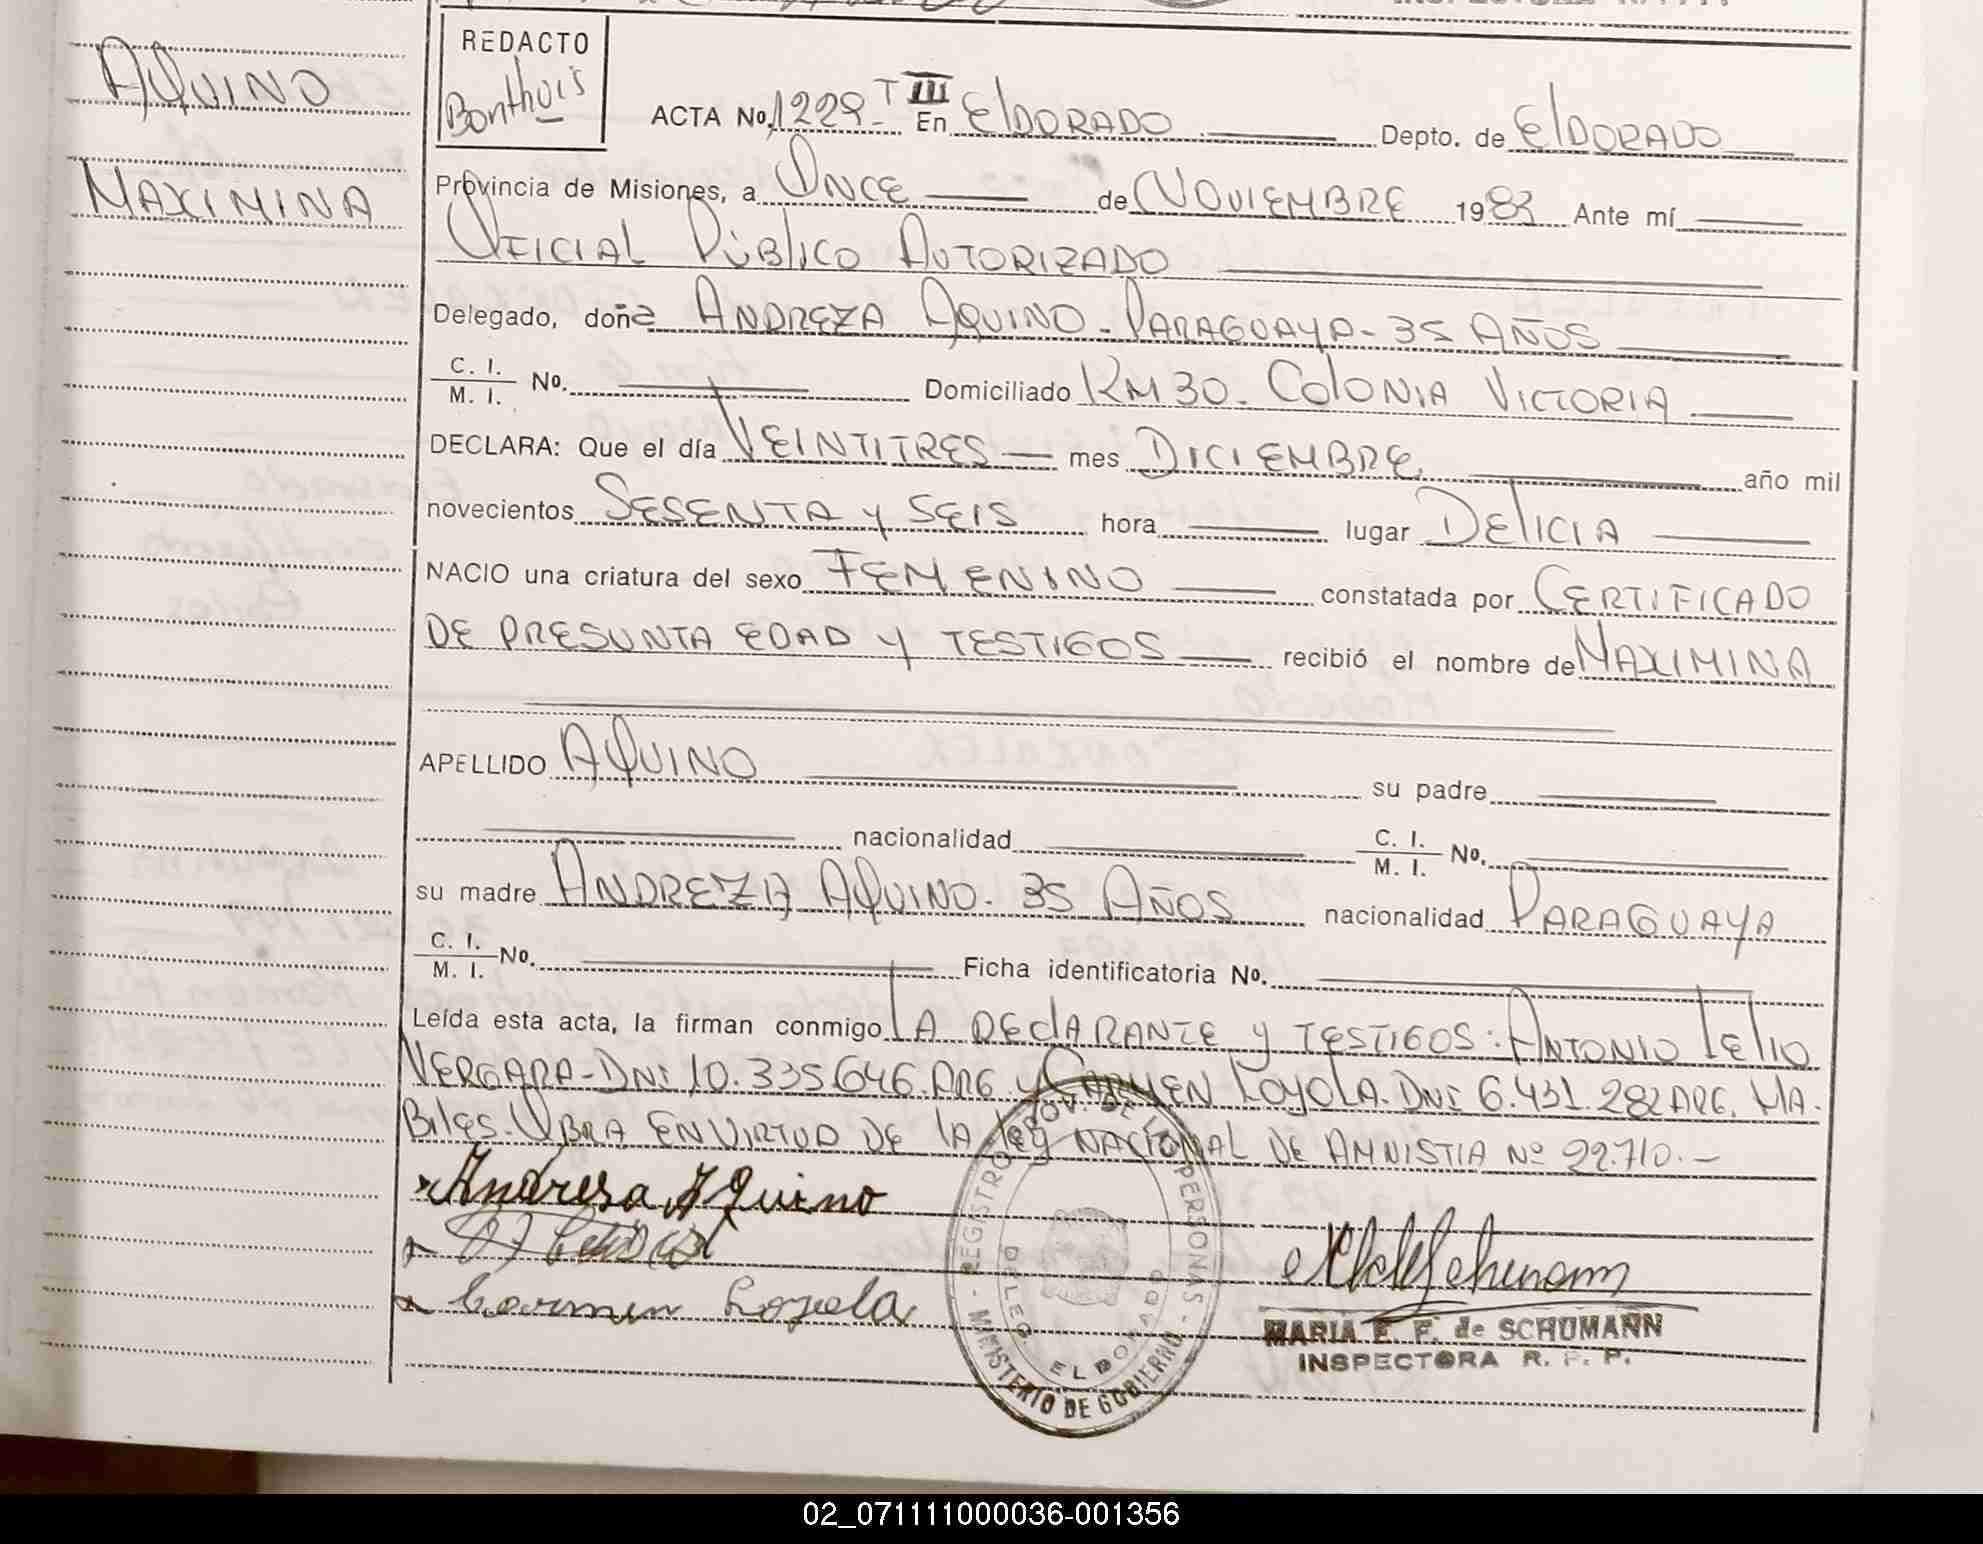 AQUINO
MAXIMINA
REDACTO
Bonthuis
ACTA No. 1229 - T III En ElDORADO Depto. de ElDORADO
Provincia de Misiones, a ONCE de NOVIEMBRE 1983 Ante mí
OFICIAL PÚBLICO AUTORIZADO
Delegado, doña ANDREZA AQUINO - PARAGUAYA - 35 AÑOS
C. I. / M. I. No. Domiciliado KM 30. COLONIA VICTORIA
DECLARA: Que el día VEINTITRES mes DICIEMBRE año mil
novecientos SESENTA y SEIS hora lugar DELICIA
NACIO una criatura del sexo FEMENINO constatada por CERTIFICADO
DE PRESUNTA EDAD y TESTIGOS recibió el nombre de MAXIMINA
APELLIDO AQUINO su padre
nacionalidad C. I. / M. I. No.
su madre ANDREZA AQUINO. 35 AÑOS nacionalidad PARAGUAYA
C. I. / M. I. No. Ficha identificatoria No.
Leída esta acta, la firman conmigo LA DEClARANTE y TESTIGOS: ANTONIO
VERGARA - DNI 10.335.646. ARG. y CARMEN LOYOLA. DNI 6.431.282 ARG. HA-
BilES. OBRA EN VIRTUD DE lA ley NACIONAL DE AMNISTIA Nº 22.710.-
Andresa Aquino
Carmen Loyola
REGISTRO PROV. DE LAS PERSONAS - MINISTERIO DE GOBIERNO -
DELEG. ELDORADO
MARIA E. F. de SCHUMANN
INSPECTORA R. P. P.
02_071111000036-001356